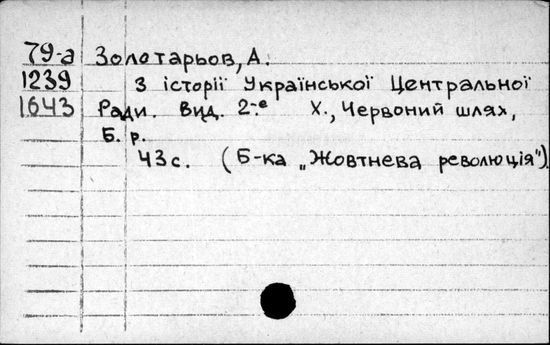 79-а Золотарьов, А.
1239 З історії Української Центральної
1643 Ради. Вид. 2-е Х., Червоний шлях,
Б. р.
43 с. (Б-ка „Жовтнева революція").